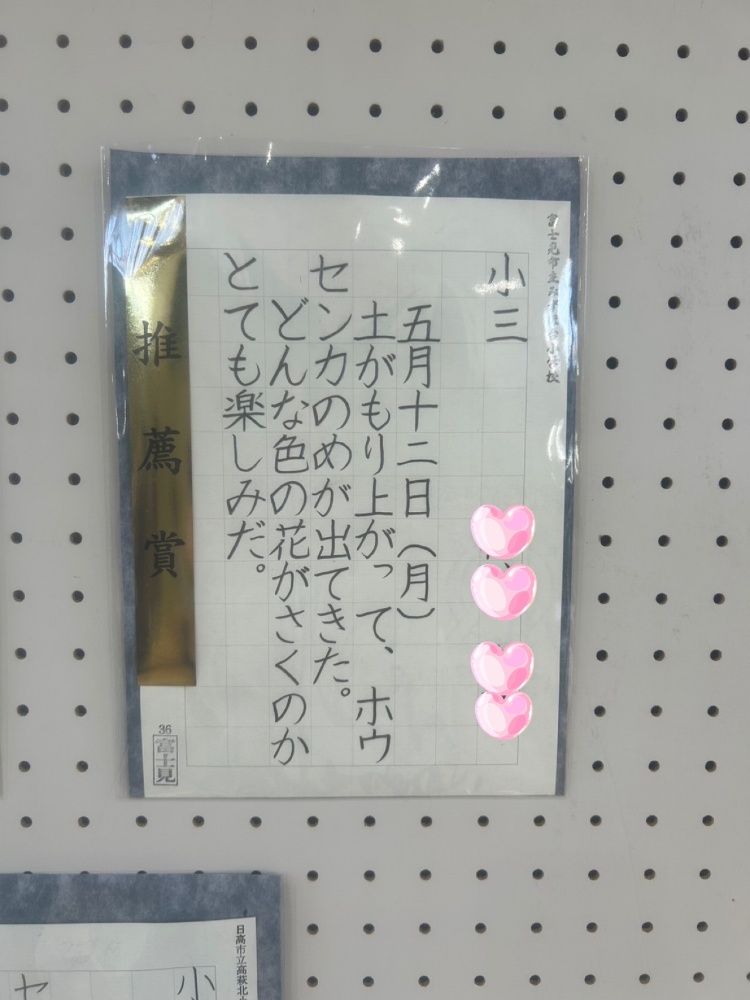 小三
五月十二日（月）
土がもり上がって、ホウ
センカのめが出てきた。
どんな色の花がさくのか
とても楽しみだ。
推薦賞
36
富士見
日高市立高萩北小
小
セ